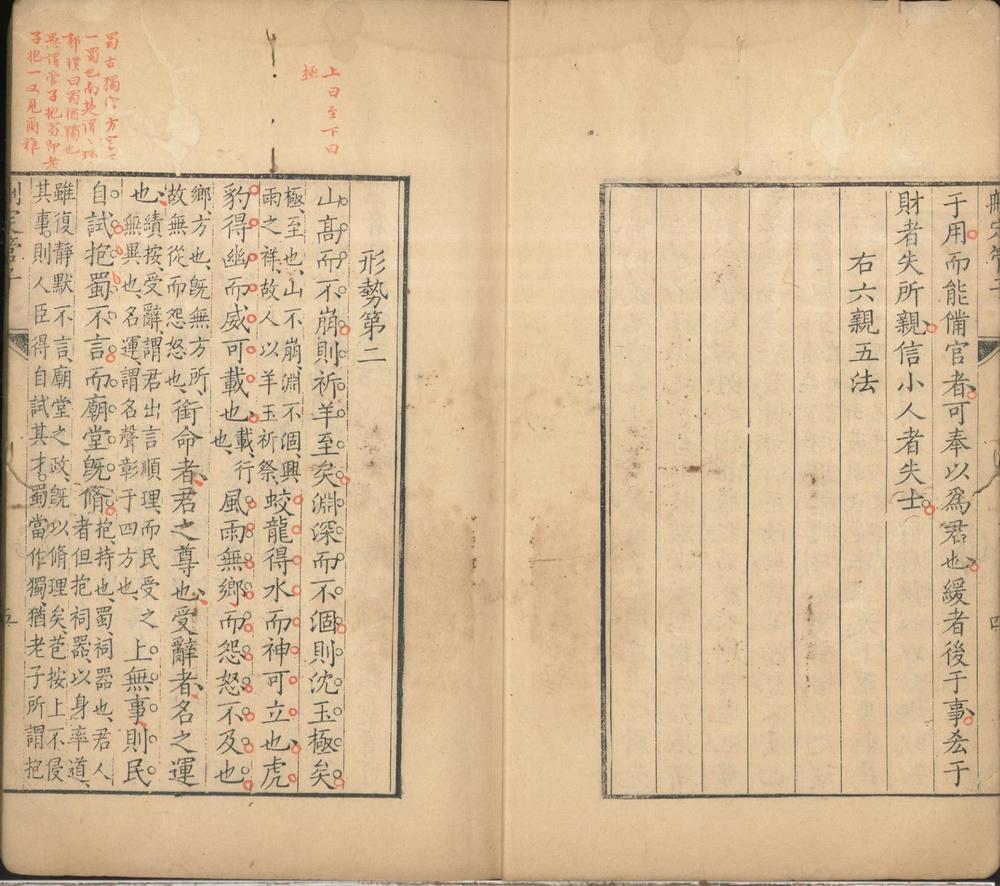 于用而能備官者可奉以爲君也緩者後于事𠫤于
財者失所親信小人者失士
右六親五法
四
上曰至下曰
極
蜀古獨字方言云
一蜀也南楚謂之獨
郭璞曰蜀猶獨也
愚謂管子抱蜀即老
子抱一又見爾雅
形勢第二
山髙而不崩則祈羊至矣淵深而不涸則沈玉極矣
極至也山不崩淵不涸興
雨之祥故人以羊玉祈祭
蛟龍得水而神可立也虎
豹得幽而威可載也
載行
也
風雨無鄉而怨怒不及也
鄉方也旣無方所
故無從而怨怒也
銜命者君之尊也受辭者名之運
也
績按受辭謂君出言順理而民受之
無異也名運謂名聲彰于四方也
上無事則民
自試抱蜀不言而廟堂旣脩
抱持也蜀祠器也君人
者但抱祠器以身率道
雖復靜默不言廟堂之政旣以脩理矣苞按上不侵
其事則人臣得自試其才蜀當作獨猶老子所謂抱
五